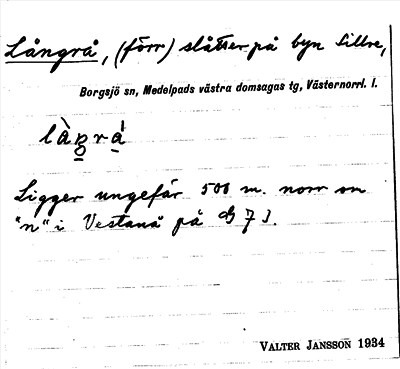 Långrå, (förr) slåtter på byn Sillre,
Borgsjö sn, Medelpads västra domsagas tg, Västernorrl. l.
Ligger ungefär 500 m. norr om
"n" i Vestanå på GB 7 J.
VALTER JANSSON 1934